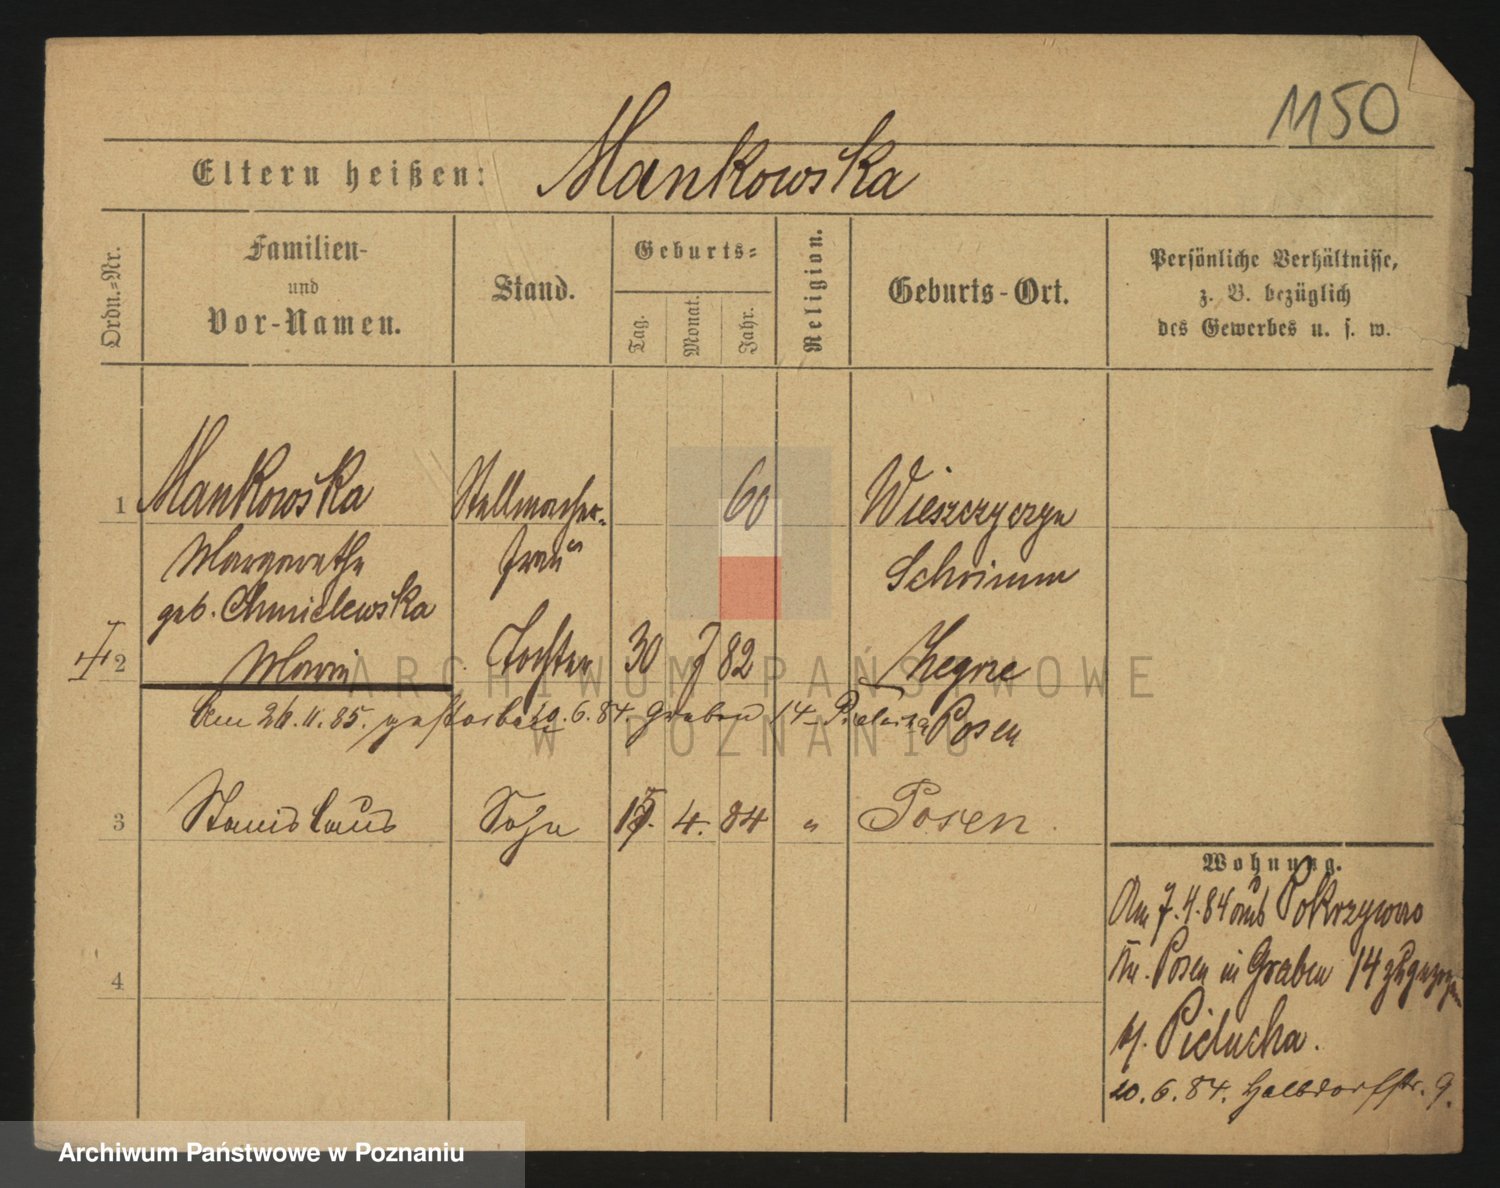 1150
Eltern heißen: Mankowska
Ordn.=Nr.
Familien-
und
Vor-Namen.
Stand.
Geburts=
Tag.
Monat.
Jahr.
Religion.
Geburts-Ort.
Persönliche Verhältnisse,
z. B. bezüglich
des Gewerbes u. s. w.
1 Mankowska Stellmacher- 60 Wieszczyczyn
Margarethe frau Schrimm
geb. Chmielewska
2 Maria Tochter 30 7 82 Zegrze
Am 26.11.85. gestorben 20.6.84. Graben 14 Pielucha Posen
3 Stanislaus Sohn 4. 84 " Posen.
Wohnung.
Am 7.4.84 aus Pokrzywno
Kr. Posen in Graben 14 zugezogen
b/. Pielucha.
4
20.6.84. Halbdorfstr. 9.
ARCHIWUM PAŃSTWOWE
W POZNANIU
Archiwum Państwowe w Poznaniu